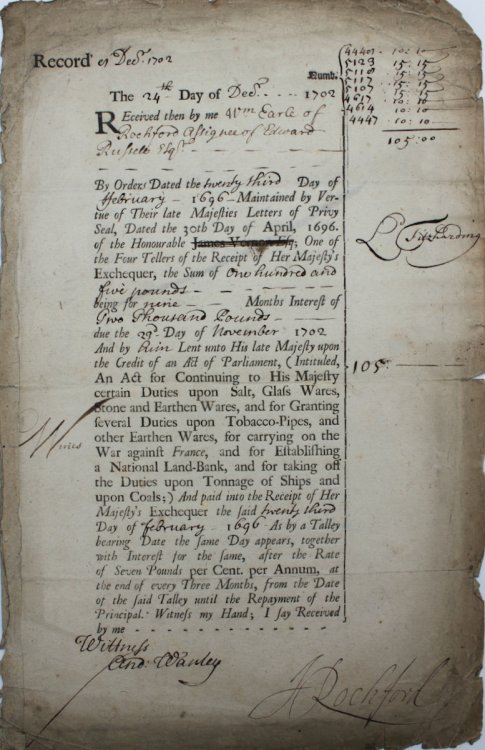 Record' 29 Decr. 1702
Numb.
4440 10: 10
5123 15: 15
5118 15: 15
5117 15: 15
5107 15: 15
4617 10: 10
4614 10: 10
4447 10: 10
105: 00
The 24th Day of Decr. 1702
REceived then by me Wm Earle of
Rochford Assignee of Edward
Russell Esqr
By Orders Dated the twenty third Day of
february 1696 Maintained by Ver-
tue of Their late Majesties Letters of Privy
Seal, Dated the 30th Day of April, 1696.
of the Honourable James Vernon Esq; One of
the Four Tellers of the Receipt of Her Majesty's
Exchequer, the Sum of One hundred and
five pounds
being for nine Months Interest of
Two Thousand Pounds
due the 29th Day of November 1702
And by him Lent unto His late Majesty upon
the Credit of an Act of Parliament, (Intituled,
An Act for Continuing to His Majesty
certain Duties upon Salt, Glass Wares,
Stone and Earthen Wares, and for Granting
several Duties upon Tobacco-Pipes, and
other Earthen Wares, for carrying on the
War against France, and for Establishing
a National Land-Bank, and for taking off
the Duties upon Tonnage of Ships and
upon Coals;) And paid into the Receipt of Her
Majesty's Exchequer the said twenty third
Day of february 1696 As by a Talley
bearing Date the same Day appears, together
with Interest for the same, after the Rate
of Seven Pounds per Cent. per Annum, at
the end of every Three Months, from the Date
of the said Talley until the Repayment of the
Principal. Witness my Hand; I say Received
by me
L. Fitzharding
105
Wittness
And: Wanley
Rochford